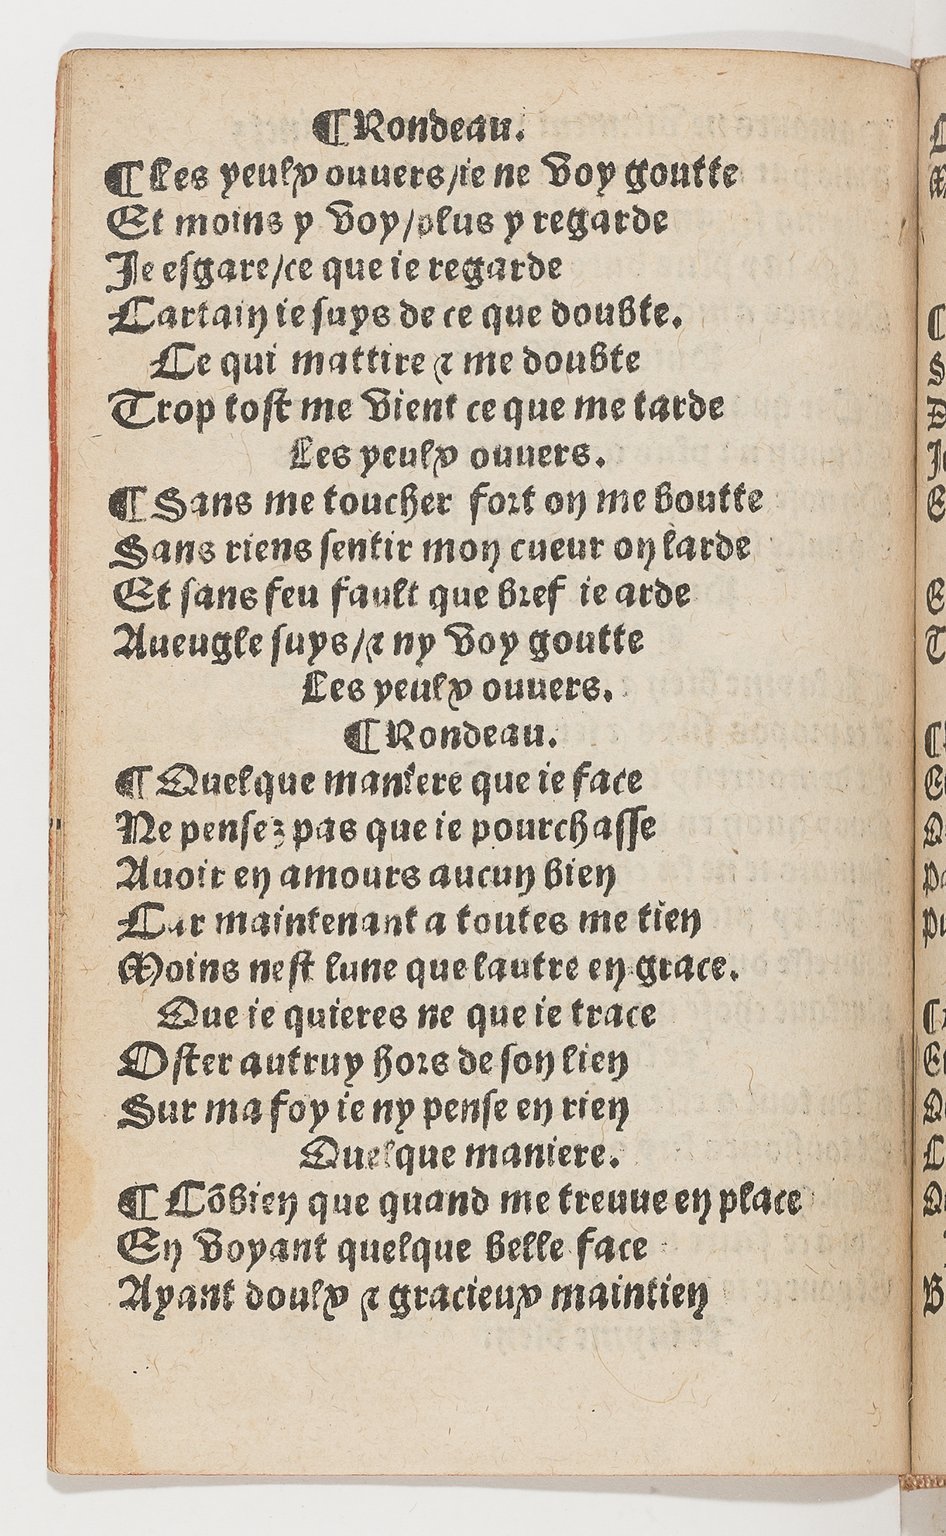 ¶ Rondeau.
¶ Les yeulx ouuers/ie ne voy goutte
Et moins y voy/plus y regarde
Je esgare/ce que ie regarde
Cartain ie suys de ce que doubte.
Ce qui mattire & me doubte
Trop tost me vient ce que me tarde
Les yeulx ouuers.
¶ Sans me toucher fort on me boutte
Sans riens sentir mon cueur on larde
Et sans feu fault que bref ie arde
Aueugle suys/& ny voy goutte
Les yeulx ouuers.
¶ Rondeau.
¶ Quelque maniere que ie face
Ne pensez pas que ie pourchasse
Auoir en amours aucun bien
Car maintenant a toutes me tien
Moins nest lune que lautre en grace.
Que ie quieres ne que ie trace
Oster autruy hors de son lien
Sur ma foy ie ny pense en rien
Quelque maniere.
¶ Cõbien que quand me treuue en place
En voyant quelque belle face
Ayant doulx & gracieux maintien